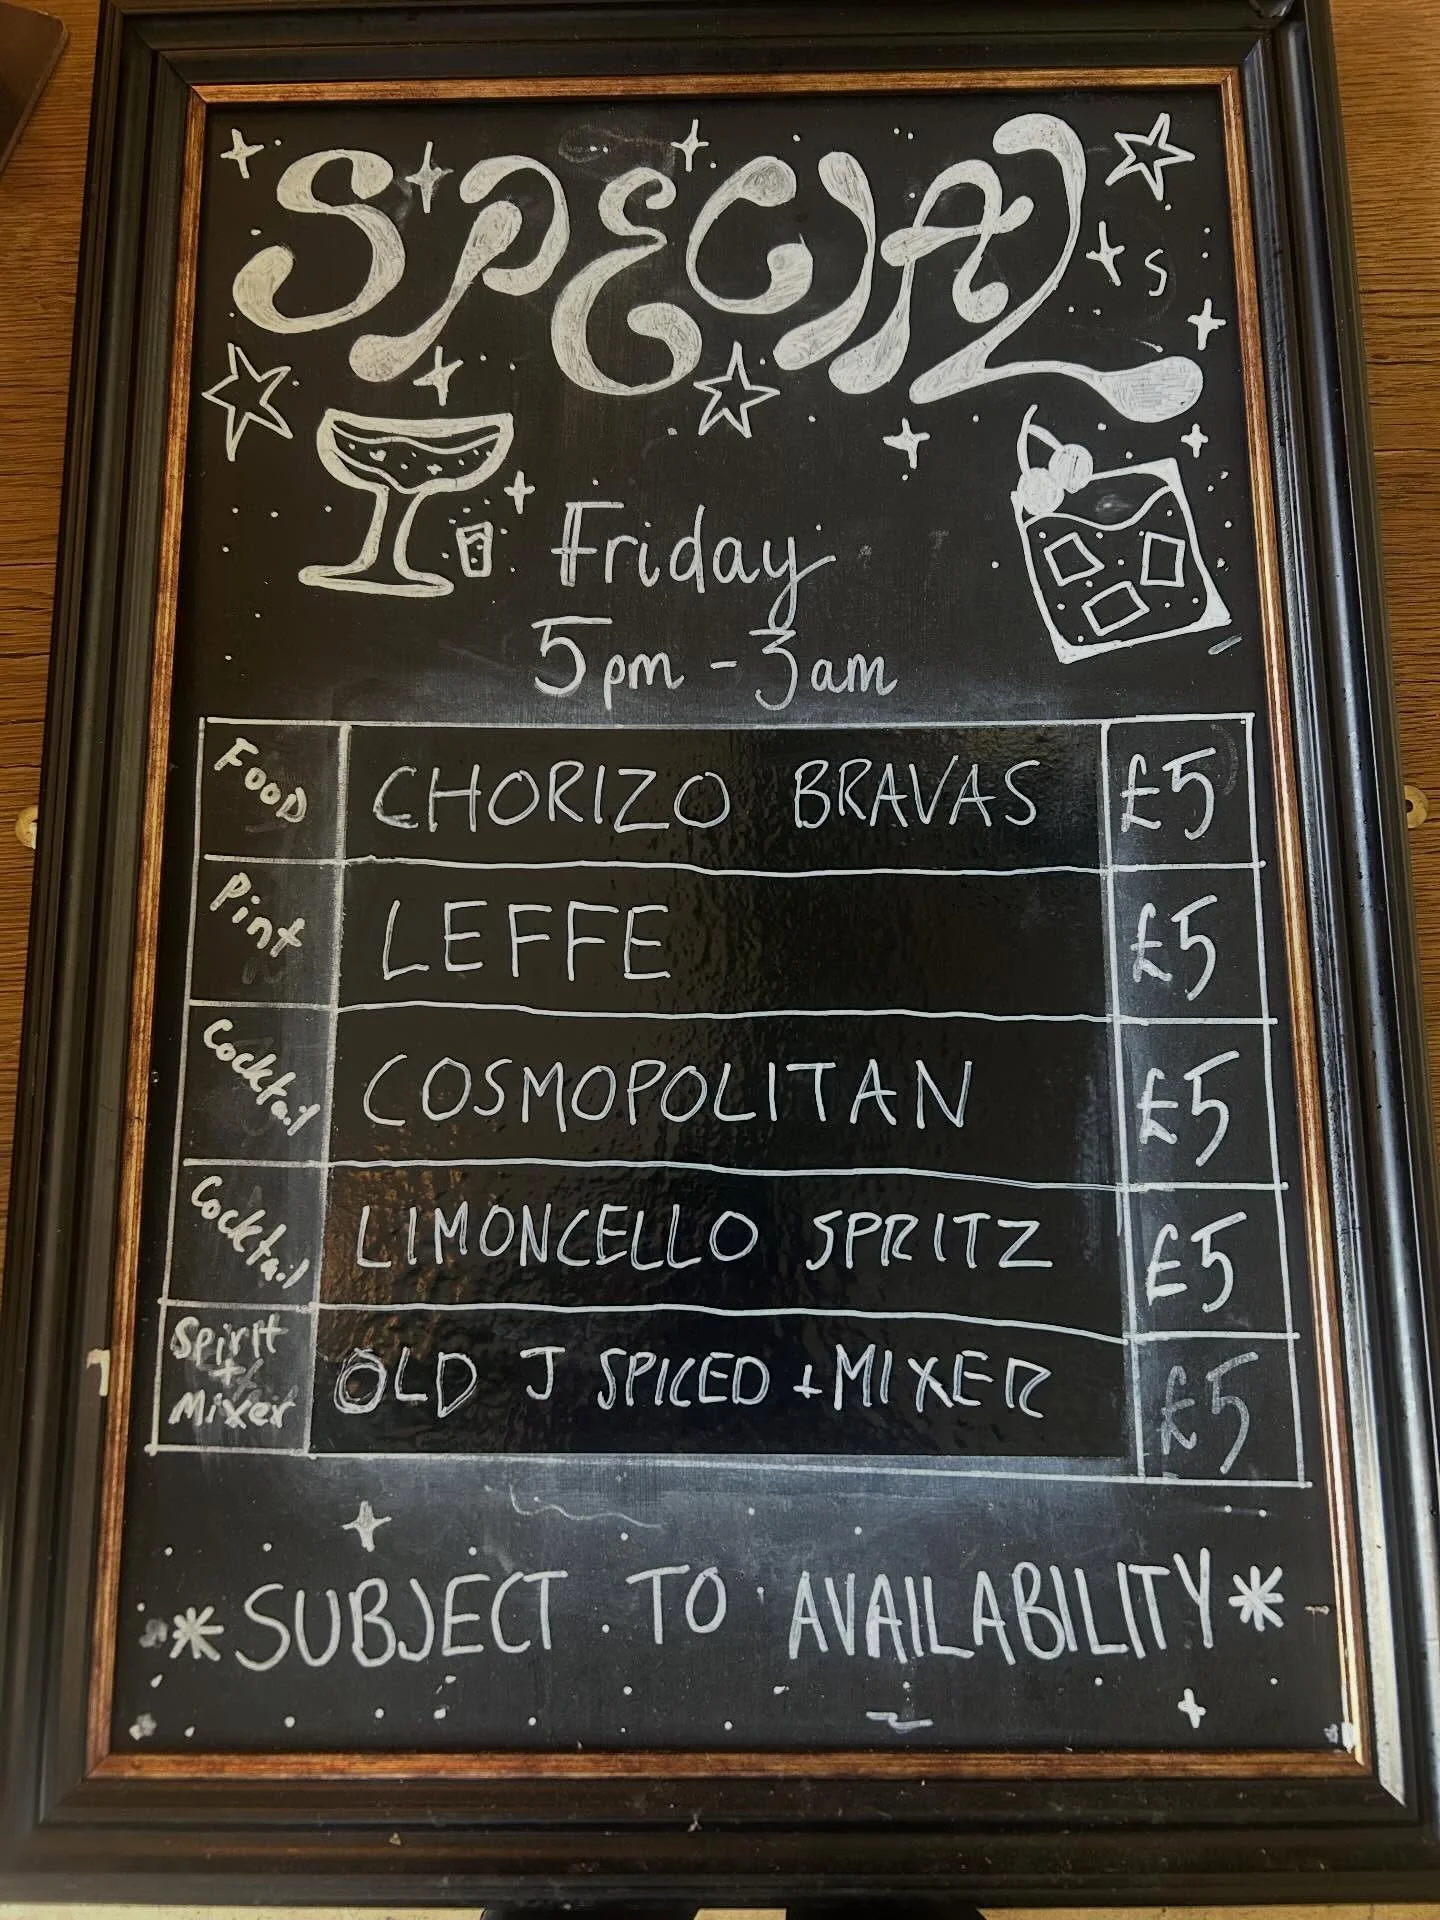 SPECIAL
s
Friday
5pm - 3am
Food CHORIZO BRAVAS £5
Pint LEFFE £5
Cocktail COSMOPOLITAN £5
Cocktail LIMONCELLO SPRITZ £5
Spirit + Mixer OLD J SPICED + MIXER £5
* SUBJECT TO AVAILABILITY *